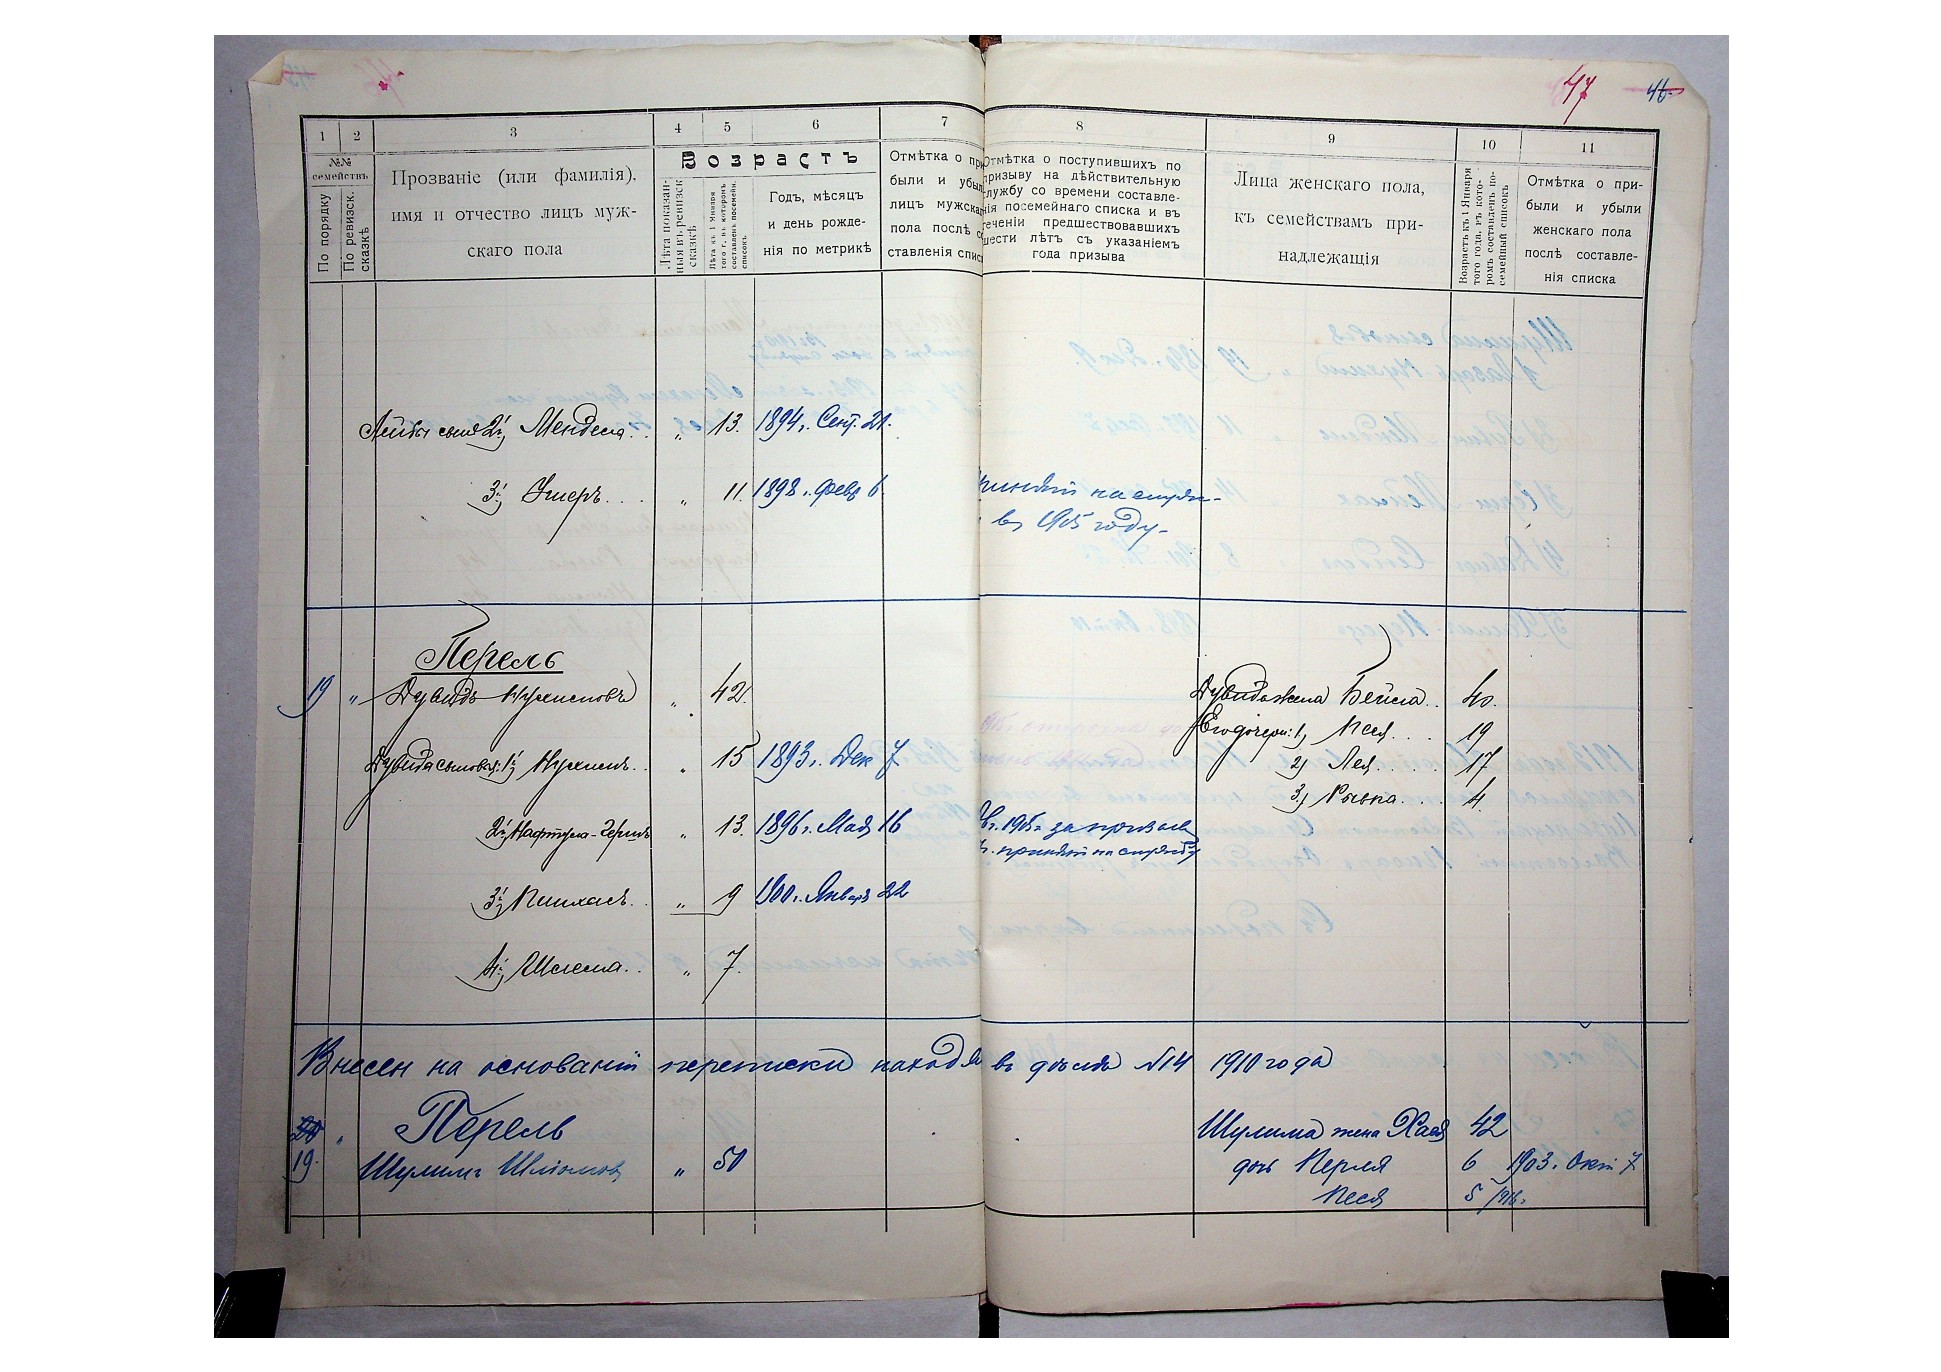 47 46
1 2 3 4 5 6 7 8 9 10 11
№№ семействъ
По порядку
По ревизск. сказкѣ
Прозваніе (или фамилія),
имя и отчество лицъ муж-
скаго пола
Возрастъ
Лѣта показан-
ныя въ ревизск.
сказкѣ
Лѣта къ 1 Января
того г. въ которомъ
составленъ посемейн.
списокъ
Годъ, мѣсяцъ
и день рожде-
нія по метрикѣ
Отмѣтка о при
были и убыли
лицъ мужска
пола послѣ со
ставленія списк
Отмѣтка о поступившихъ по
призыву на дѣйствительную
службу со времени составле-
нія посемейнаго списка и въ
теченіи предшествовавшихъ
шести лѣтъ съ указаніемъ
года призыва
Лица женскаго пола,
къ семействамъ при-
надлежащія
Возрастъ къ 1 Января
того года, въ кото-
ромъ составленъ по-
семейный списокъ
Отмѣтка о при-
были и убыли
женскаго пола
послѣ составле-
нія списка
2й Мендель . . „ 13. 1894 г. Сент. 21.
3й Ушеръ . . . „ 11. 1898 г. Февр 6
на службу
въ 1915 году
Перель
19 „ Дувидъ Нухимовъ „ 42. Дувида жена Бейла . . 40.
Его дочери: 1) Песя . . . . 19
Дувида сыновья: 1й Нухимъ . . „ 15 1893 г. Дек 7 2) Лея . . . . . 17
3) Рывка . . . 4.
2й Нафтула-Гершъ „ 13. 1896 г. Мая 16 1915 г. за призывъ
принятъ на службу
3й Пинхасъ . . „ 9 1900 г. Января 22
4й Шлема . . „ 7.
Внесен на основаніи переписки находя въ дѣлѣ №14 1910 года
20 „ Перель Шулима жена Хая 42
19. Шулимъ Шліомовъ „ 50 дочь Перля 6 1903 г. Окт 7
Песя 5